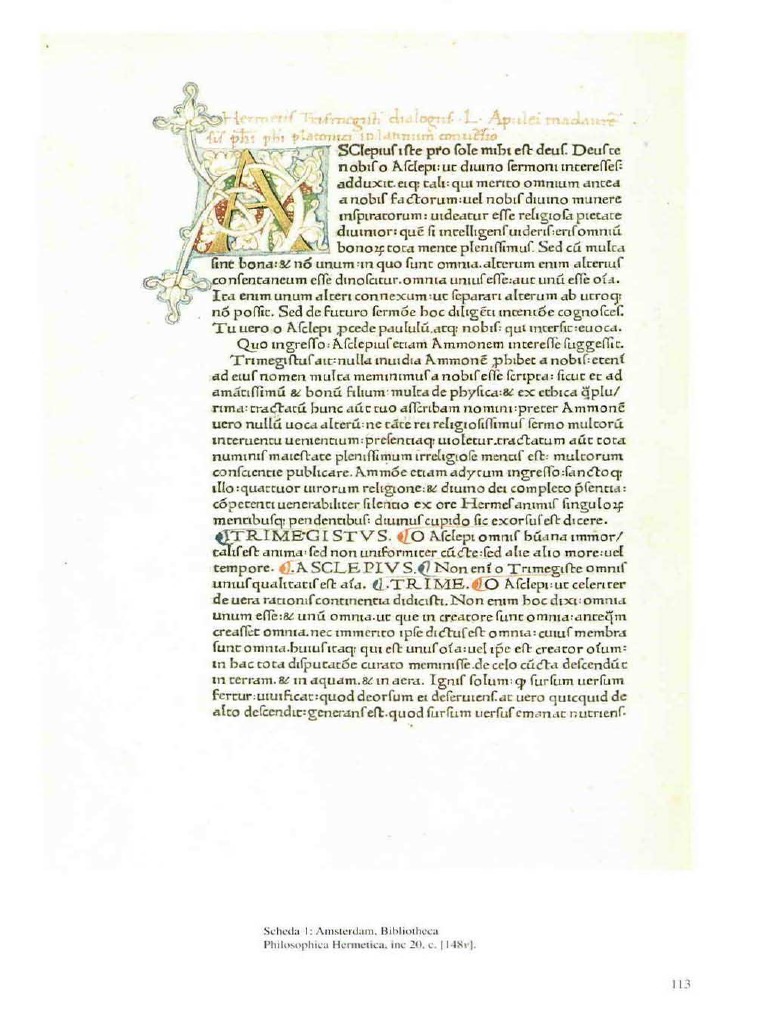 Hermetis Trismegisti dialogus. L. Apulei madaurē
sis phi phi platonici in latinum conuersio
ASClepius iste pro sole mihi est deus. Deus te
nobis o Asclepi: ut diuino sermoni interesses:
adduxit. eiq; tali: qui merito omnium antea
a nobis factorum: uel nobis diuino munere
inspiratorum: uideatur esse religiosa pietate
diuinior: quē si intelligens uideris: eris omniū
bonoꝝ tota mente plenissimus. Sed cū multa
sint bona: & nō unum: in quo sunt omnia. alterum enim alterius
consentaneum esse dinoscitur. omnia unius esse: aut unū esse oīa.
Ita enim unum alteri connexum: ut separari alterum ab utroq;
nō possit. Sed de futuro sermōe hoc diligēti intentōe cognosces.
Tu uero o Asclepi ꝓcede paululū. atq; nobis: qui intersit: euoca.
Quo ingresso: Asclepius etiam Ammonem interesse suggessit.
Trimegistus ait: nulla inuidia Ammonē ꝓhibet a nobis: etenī
ad eius nomen multa meminimus a nobis esse scripta: sicut et ad
amātissimū & bonū filium: multa de physica: & ex ethica q̄plu/
rima: tractatū hunc aūt tuo asscribam nomini: preter Ammonē
uero nullū uoca alterū: ne tāte rei religiosissimus sermo multorū
interuentu uementium: presentiaq; uioletur. tractatum aūt tota
numinis maiestate plenissimum irreligiose mentis est: multorum
consciencie publicare. Ammōe etiam adytum ingresso: sanctoq;
illo: quattuor uirorum religione: & diuino dei completo p̄sentia:
cōpetenti uenerabiliter silentio ex ore Hermes animis singuloꝝ
mentibusq; pendentibus: diuinus cupido sic exorsus est dicere.
¶TRIMEGISTVS. ¶O Asclepi omnis hūana immor/
talis est anima: sed non uniformiter cūcte: sed alie alio more: uel
tempore. ¶.ASCLEPIVS.¶ Non enī o Trimegiste omnis
unius qualitatis est aīa. ¶.TRIME. ¶O Asclepi: ut celeriter
de uera rationis continentia didicisti. Non enim hoc dixi: omnia
unum esse: & unū omnia. ut que in creatore sunt omnia: anteq̄m
creasset omnia. nec immerito ipse dictus est omnia: cuius membra
sunt omnia. huius itaq; qui est unus oīa: uel ip̄e est creator oīum:
in hac tota disputatōe curato meminisse. de celo cūcta descendūt
in terram. & in aquam. & in aera. Ignis solum: ꝙ sursum uersum
fertur: uiuificat: quod deorsum ei deseruiens. at uero quicquid de
alto descendit: generans est. quod sursum uersus emanat nutriens.
Scheda 1: Amsterdam, Bibliotheca
Philosophica Hermetica, inc 20, c. [148v].
113